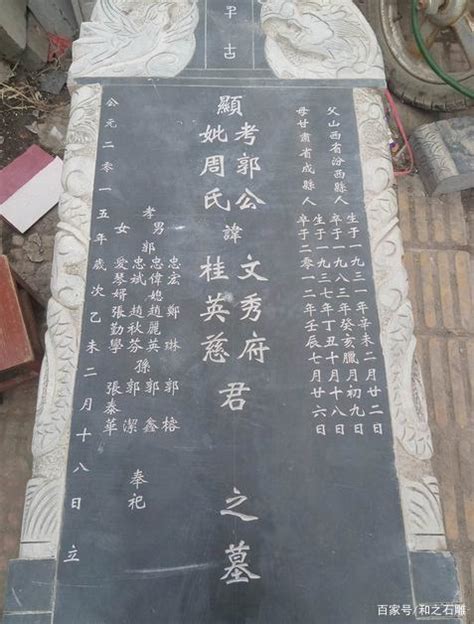 古
父山西省汾西縣人
生于一九三一年辛未二月廿二日
卒于一九八三年癸亥臘月初九日
母甘肅省成縣人
生于一九三七年丁丑十月十八日
卒于二零一二年壬辰七月廿六日
顯
考郭公
妣周氏
諱
文秀府
桂英慈
君之墓
孝男郭
忠宏 鄭琳 郭榕
忠偉媳趙麗英孫郭鑫
忠斌 趙秋芬 郭潔
女愛琴婿張勤學 張泰華
奉祀
公元二零一五年歲次乙未二月十八日立
百家号/和之石雕